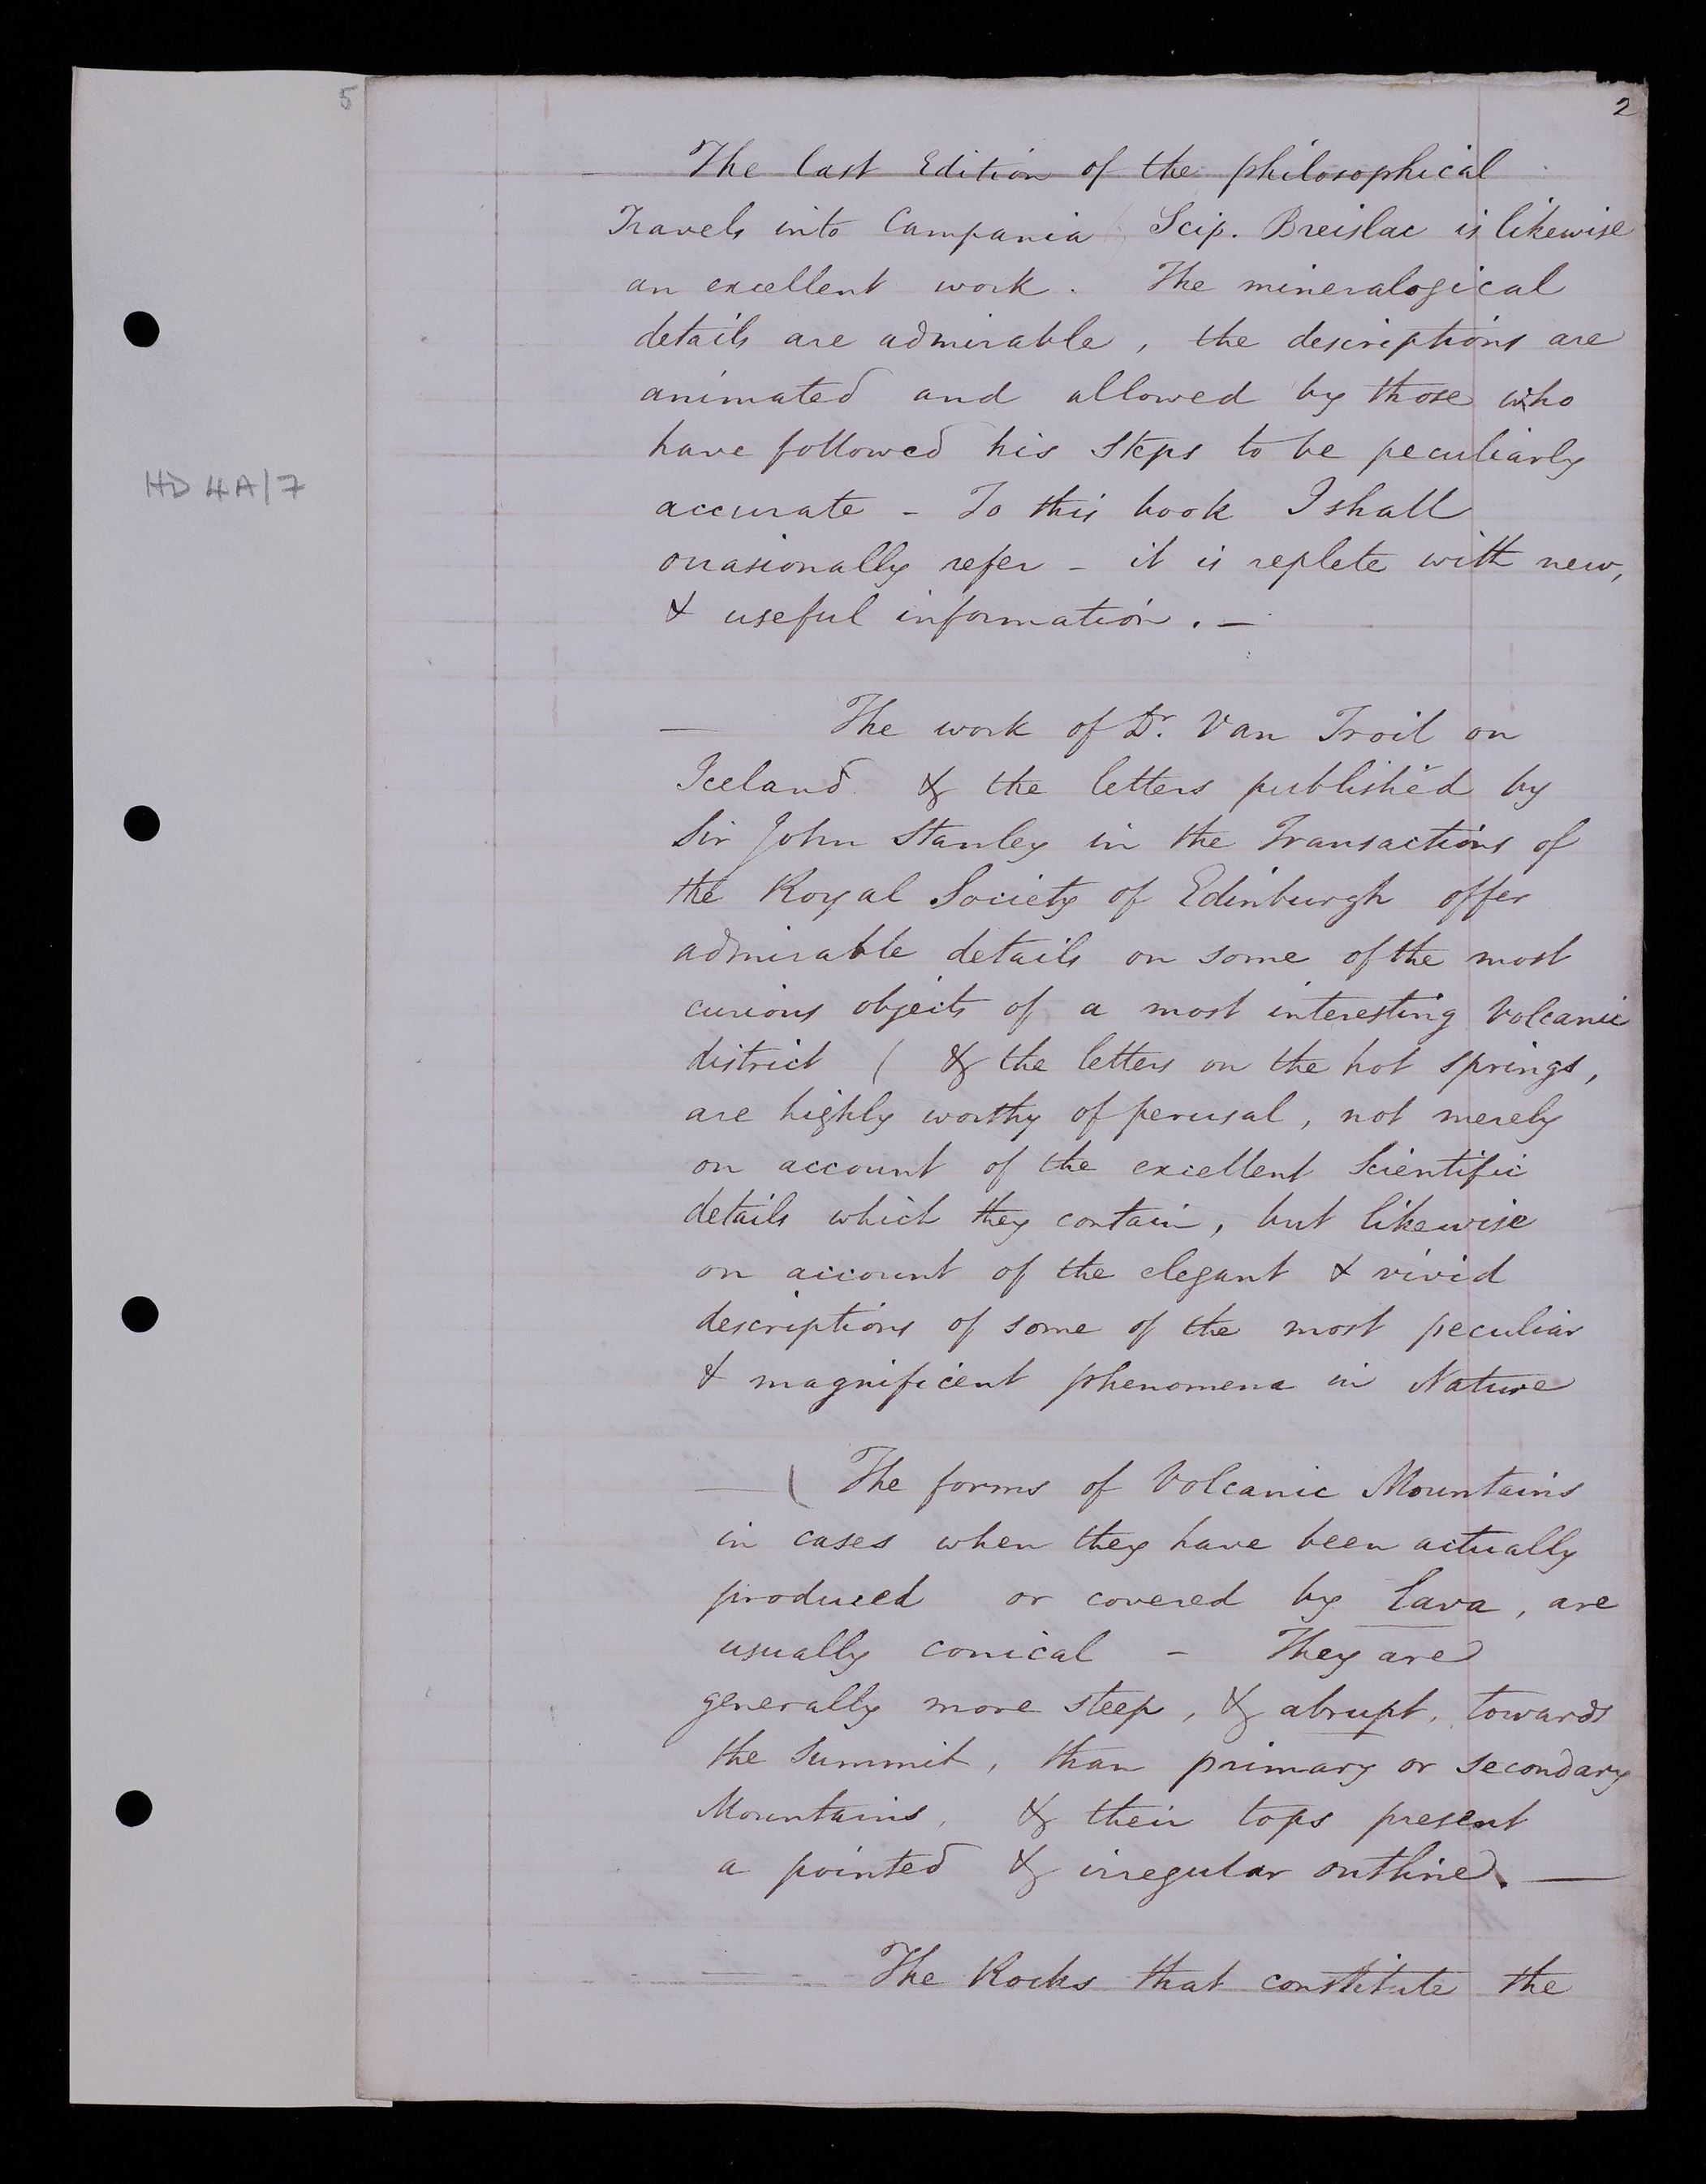 5
2
HD 4A/7
The last Edition of the philosophical
Travels into Campania Scip. Breislac is likewise
an excellent work. The mineralogical
details are admirable, the descriptions are
animated and allowed by those who
have followed his steps to be peculiarly
accurate - To this book I shall
occasionally refer - it is replete with new,
& useful information. -
— The work of Dr. Van Troil on
Iceland & the letters published by
Sir John Stanley in the Transactions of
the Royal Society of Edinburgh offer
admirable details on some of the most
curious objects of a most interesting Volcanic
district ( & the letters on the hot springs,
are highly worthy of perusal, not merely
on account of the excellent Scientific
details which they contain, but likewise
on account of the elegant & vivid
descriptions of some of the most peculiar
& magnificent phenomena in Nature
— ( The forms of Volcanic Mountains
in cases when they have been actually
produced or covered by Lava, are
usually conical - They are
generally more steep, & abrupt, towards
the summit, than primary or secondary
Mountains, & their tops present
a pointed & irregular outline. —
— The Rocks that constitute the